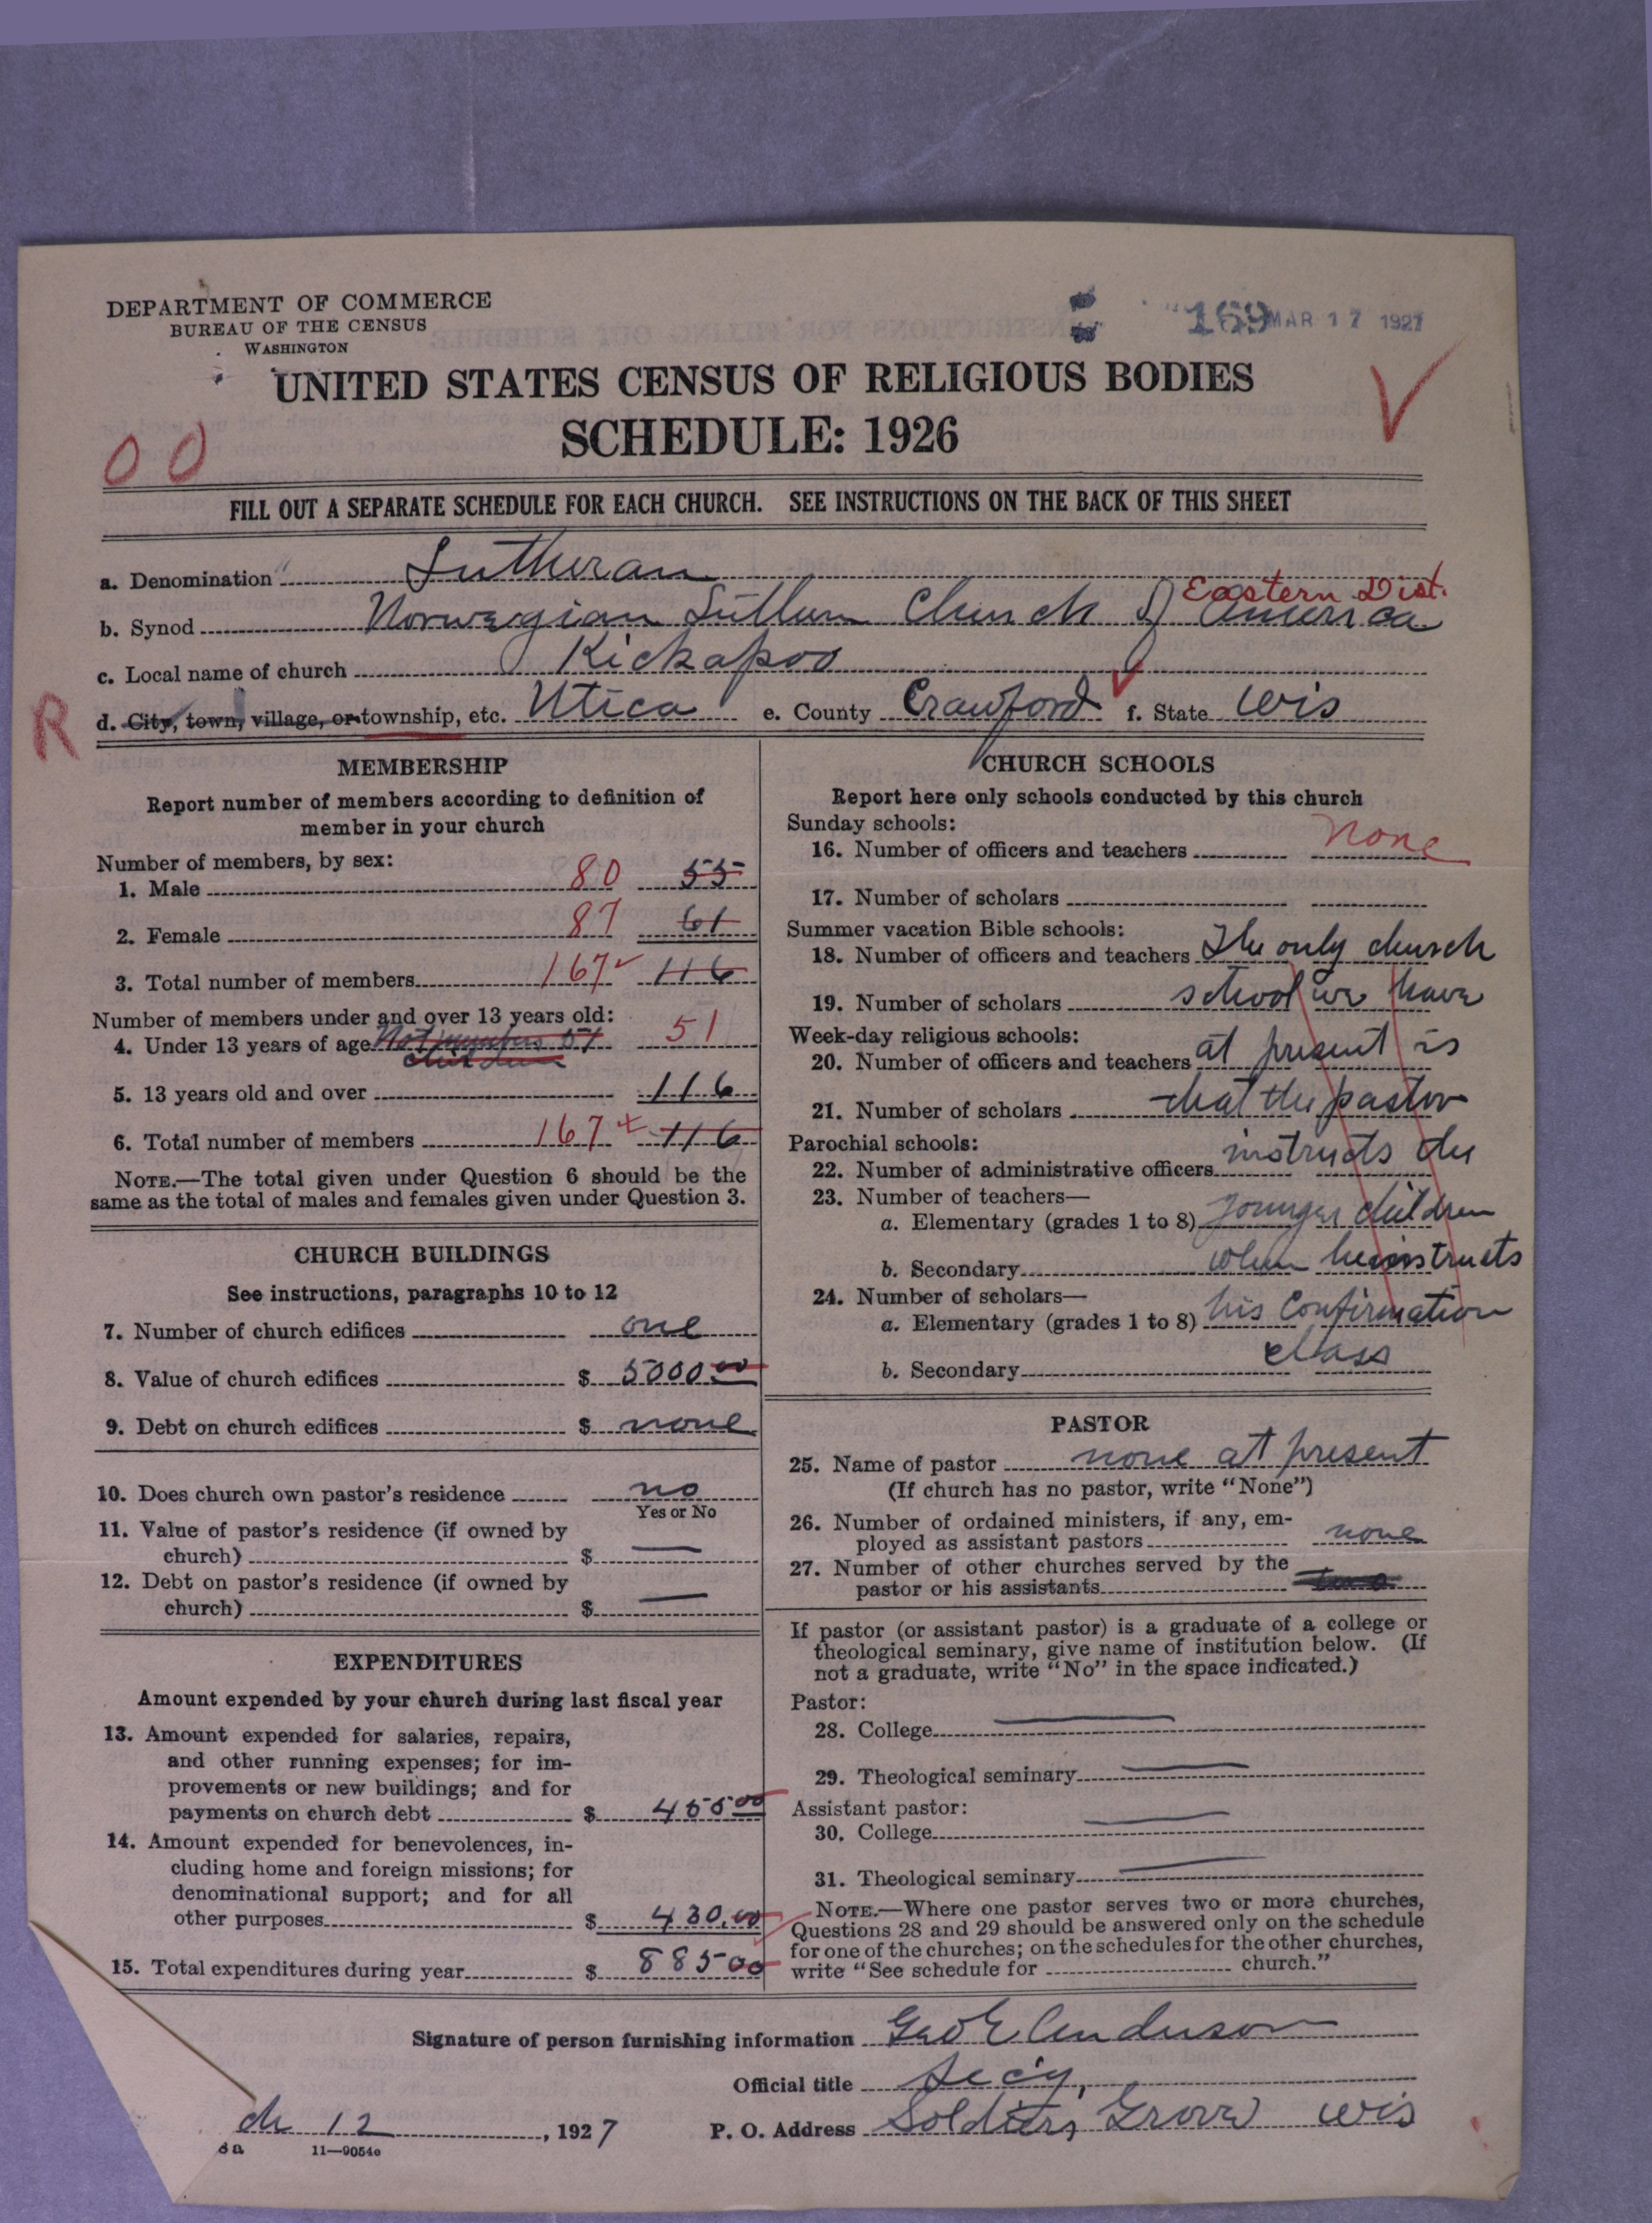 DEPARTMENT OF COMMERCE
BUREAU OF THE CENSUS
WASHINGTON
169 MAR 17 1927
UNITED STATES CENSUS OF RELIGIOUS BODIES
SCHEDULE: 1926
00
V
FILL OUT A SEPARATE SCHEDULE FOR EACH CHURCH. SEE INSTRUCTIONS ON THE BACK OF THIS SHEET
a. Denomination Lutheran
Eastern Dist.
b. Synod Norwegian Luthern Church of America
c. Local name of church Kickapoo
R
d. City, town, village, or township, etc. Utica e. County Crawford f. State Wis
MEMBERSHIP
Report number of members according to definition of
member in your church
Number of members, by sex:
1. Male 80 55
2. Female 87 61
3. Total number of members 167 116
Number of members under and over 13 years old:
4. Under 13 years of age Not members 51 51
children
5. 13 years old and over 116
6. Total number of members 167 116
NOTE.—The total given under Question 6 should be the
same as the total of males and females given under Question 3.
CHURCH BUILDINGS
See instructions, paragraphs 10 to 12
7. Number of church edifices one
8. Value of church edifices $ 5000 00
9. Debt on church edifices $ none
10. Does church own pastor's residence no
Yes or No
11. Value of pastor's residence (if owned by
church) $ —
12. Debt on pastor's residence (if owned by
church) $ —
EXPENDITURES
Amount expended by your church during last fiscal year
13. Amount expended for salaries, repairs,
and other running expenses; for im-
provements or new buildings; and for
payments on church debt $ 455 00
14. Amount expended for benevolences, in-
cluding home and foreign missions; for
denominational support; and for all
other purposes $ 430.00
15. Total expenditures during year $ 885 00
CHURCH SCHOOLS
Report here only schools conducted by this church
Sunday schools:
16. Number of officers and teachers none
17. Number of scholars
Summer vacation Bible schools:
18. Number of officers and teachers The only church
19. Number of scholars school we have
Week-day religious schools:
20. Number of officers and teachers at present is
21. Number of scholars that the pastor
Parochial schools:
22. Number of administrative officers instructs the
23. Number of teachers—
a. Elementary (grades 1 to 8) younger children
b. Secondary when he instructs
24. Number of scholars—
a. Elementary (grades 1 to 8) his Confirmation
b. Secondary class
PASTOR
25. Name of pastor none at present
(If church has no pastor, write "None")
26. Number of ordained ministers, if any, em-
ployed as assistant pastors none
27. Number of other churches served by the
pastor or his assistants
If pastor (or assistant pastor) is a graduate of a college or
theological seminary, give name of institution below. (If
not a graduate, write "No" in the space indicated.)
Pastor:
28. College —
29. Theological seminary —
Assistant pastor:
30. College —
31. Theological seminary —
NOTE.—Where one pastor serves two or more churches,
Questions 28 and 29 should be answered only on the schedule
for one of the churches; on the schedules for the other churches,
write "See schedule for church."
Signature of person furnishing information Geo E Anderson
Official title Secy,
ch 12, 1927 P. O. Address Soldiers Grove Wis
8a 11—9054c